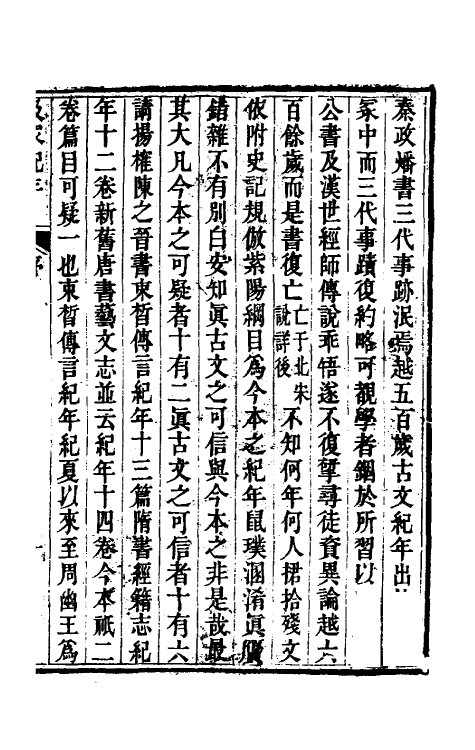 秦政燔書三代事跡泯焉越五百歲古文紀年出
冢中而三代事蹟復約略可觀學者錮於所習以
公書及漢世經師傳說乖悟遂不復挈尋徒資異論越六
百餘歲而是書復亡亡于北宋說詳後不知何年何人捃拾殘文
依附史記規倣紫陽綱目爲今本之紀年鼠璞溷淆眞贋
錯雜不有別白安知眞古文之可信與今本之非是哉最
其大凡今本之可疑者十有二眞古文之可信者十有六
請揚榷陳之晉書束皙傳言紀年十三篇隋書經籍志紀
年十二卷新舊唐書藝文志並云紀年十四卷今本祇二
卷篇目可疑一也束皙傳言紀年紀夏以來至周幽王爲
序